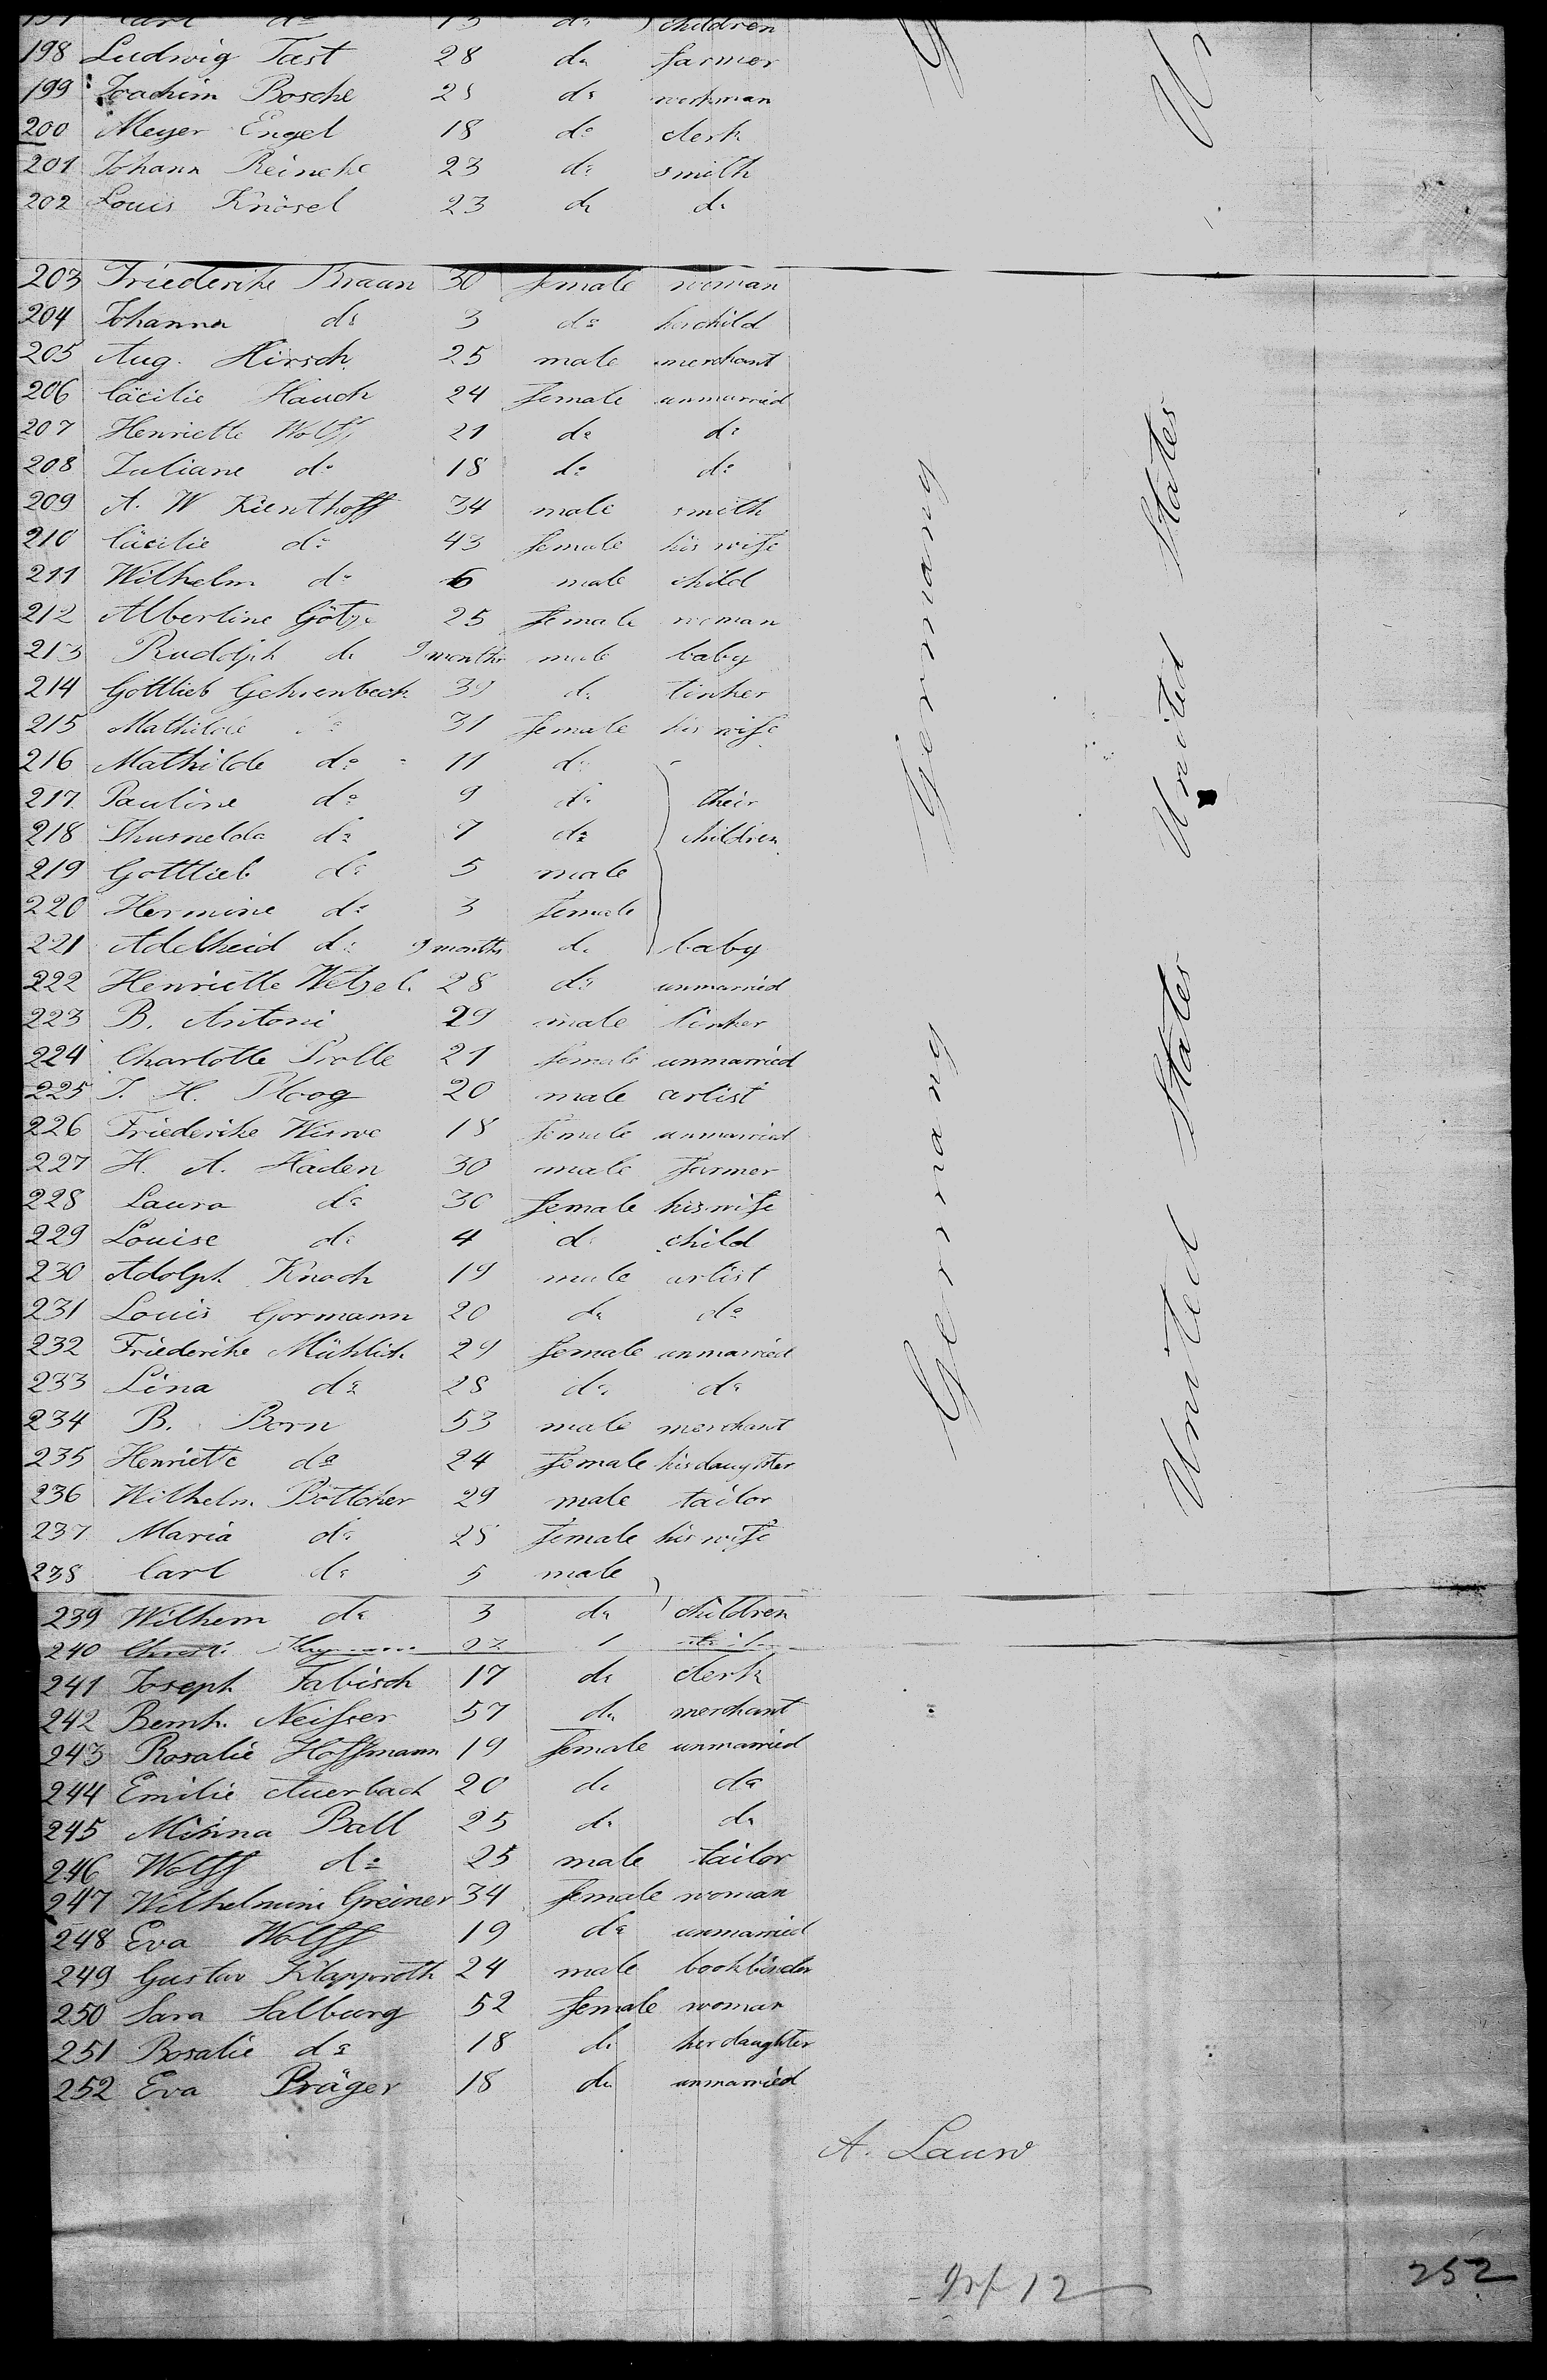 197 Carl do 13 do children
198 Ludwig Tast 28 do farmer
199 Joachim Bosche 28 do workman
200 Meyer Engel 18 do clerk
201 Johann Reincke 23 do smith
202 Louis Knösel 23 do do
203 Friederike Braun 30 female woman
204 Johanna do 3 do her child
205 Aug. Hirsch 25 male merchant
206 Cäcilie Hauch 24 female unmarried
207 Henriette Wolff 21 do do
208 Juliane do 18 do do
209 A. W Kienthoff 34 male smith
210 Cäcilie do 43 female his wife
211 Wilhelm do 6 male child
212 Albertine Götze 25 female woman
213 Rudolph do 9 months male baby
214 Gottlieb Gehrenbeck 39 do tinker
215 Mathilde do 31 female his wife
216 Mathilde do 11 do
217 Pauline do 9 do their
218 Thusnelda do 7 do children
219 Gottlieb do 5 male
220 Hermine do 3 female
221 Adelheid do 9 months do baby
222 Henriette Wetzel 28 do unmarried
223 B. Antoni 29 male tinker
224 Charlotte Prolle 21 female unmarried
225 J. H. Ploog 20 male artist
226 Friederike Wiswe 18 female unmarried
227 H. A. Haden 30 male farmer
228 Laura do 30 female his wife
229 Louise do 4 do child
230 Adolph Knoch 19 male artist
231 Louis Gormann 20 do do
232 Friederike Mühlich 29 female unmarried
233 Lina do 28 do do
234 B. Born 53 male merchant
235 Henriette do 24 female his daughter
236 Wilhelm Böttcher 29 male tailor
237 Maria do 28 female his wife
238 Carl do 5 male
239 Wilhem do 3 do children
240
241 Joseph Fabisch 17 do clerk
242 Bernh. Neisser 57 do merchant
243 Rosalie Hoffmann 19 female unmarried
244 Emilie Auerbach 20 do do
245 Minna Ball 25 do do
246 Wolff do 25 male tailor
247 Wilhelmine Greiner 34 female woman
248 Eva Wolff 19 do unmarried
249 Gustav Klapproth 24 male bookbinder
250 Sara Salburg 52 female woman
251 Rosalie do 18 do her daughter
252 Eva Präger 18 do unmarried
Germany Germany
United States United States
A. Lauw
12
252